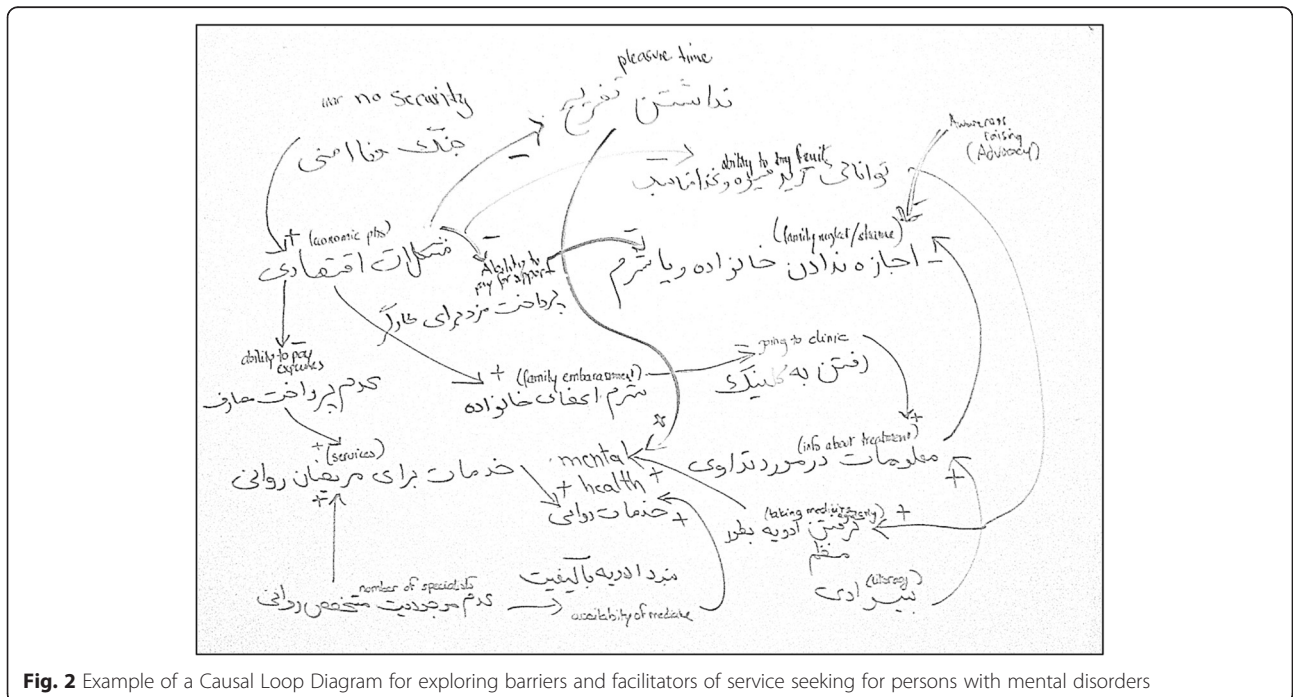 pleasure time
نداشتن تفریح
war no security
جنگ و نا امنی
Awareness
raising
(Advocacy)
ability to buy fruit
توانائی خرید میوه و غذا مناسب
+ (economic pbs)
مشکلات اقتصادی
Ability to
pay for support
پرداخت مزد برای کارگر
(family neglect/shame)
اجازه ندادن خانواده و یا شرم
ability to pay
expenses
عدم پرداخت مصارف
+ (family embarassment)
شرم اعضای خانواده
going to clinic
رفتن به کلینیک
+ (services)
خدمات برای مریضان روانی
+
mental
+ health +
خدمات روانی +
(info about treatment) +
معلومات در مورد تداوی
+
(taking medicine regularly) +
گرفتن ادویه بطور
منظم
(literacy)
بیسوادی
number of specialists
عدم موجودیت متخصص روانی
نبود ادویه باکیفیت
availability of medicine
Fig. 2 Example of a Causal Loop Diagram for exploring barriers and facilitators of service seeking for persons with mental disorders